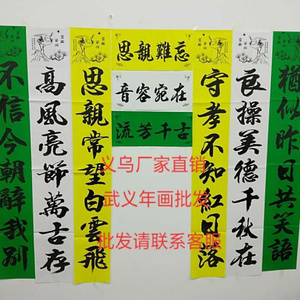 猶似昨日共笑語
良操美德千秋在
守孝不知紅日落
思親難忘
音容宛在
流芳千古
思親常望白雲飛
高風亮節萬古存
不信今朝辭我別
义乌厂家直销
武义年画批发
批发请联系客服